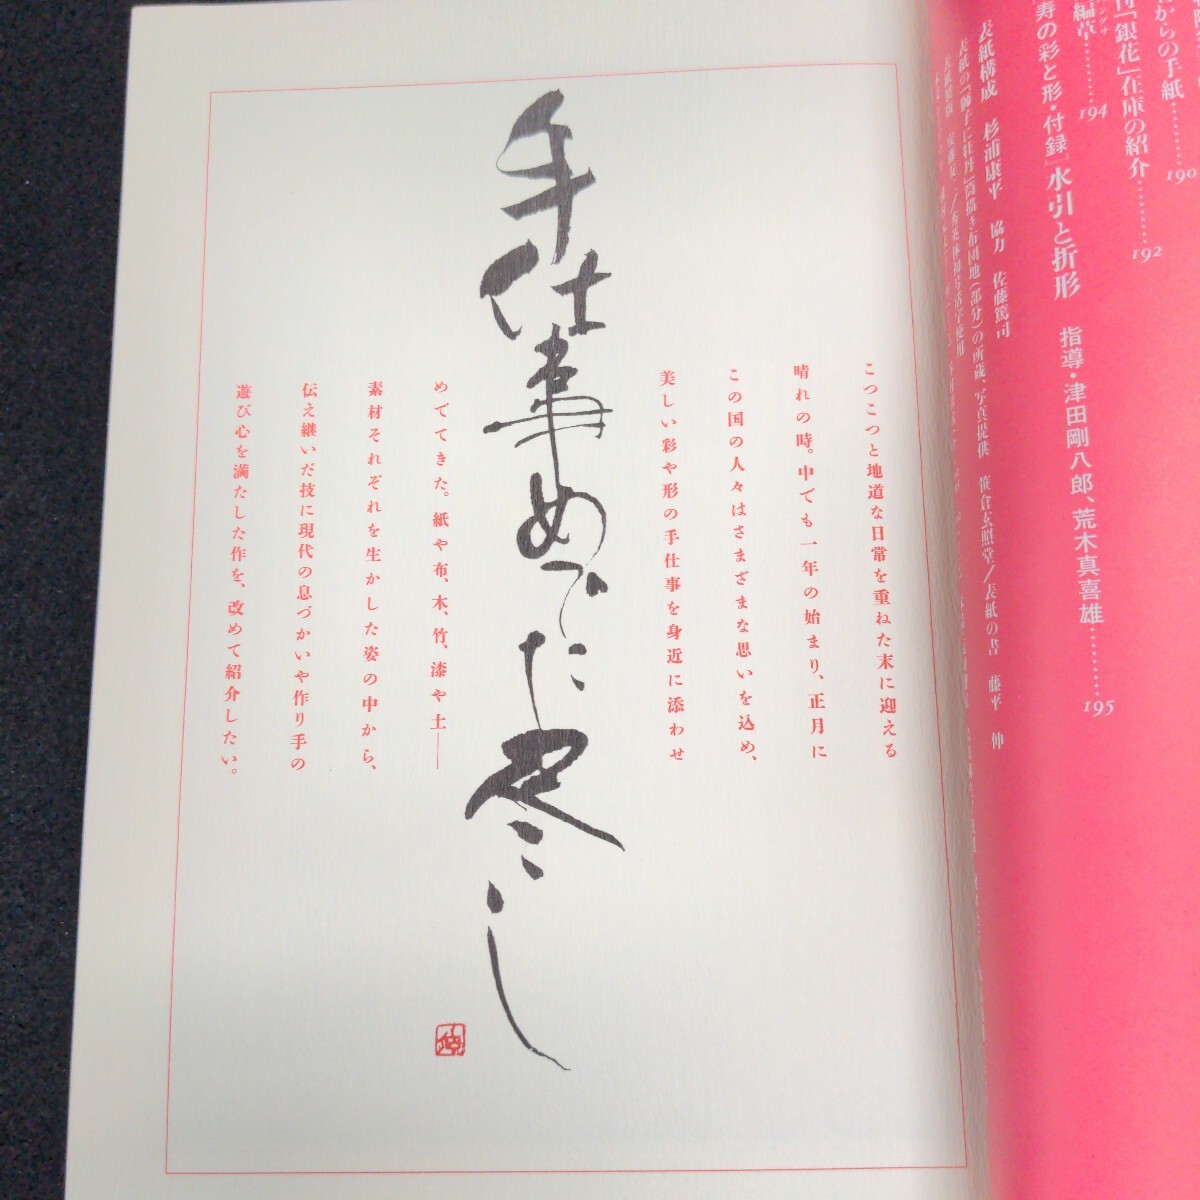 からの手紙…………190
刊「銀花」在庫の紹介…………192
編草…………194
寿の彩と形・付録」水引と折形　指導・津田剛八郎、荒木真喜雄…………195
表紙構成　杉浦康平　協力　佐藤篤司
表紙の「獅子に牡丹」筒描き布団地(部分)の所蔵、写真提供　笹倉玄照堂／表紙の書　藤平　伸
こつこつと地道な日常を重ねた末に迎える
晴れの時。中でも一年の始まり、正月に
この国の人々はさまざまな思いを込め、
美しい彩や形の手仕事を身近に添わせ
手仕事めでた尽し
めでてきた。紙や布、木、竹、漆や土——
素材それぞれを生かした姿の中から、
伝え継いだ技に現代の息づかいや作り手の
遊び心を満たした作を、改めて紹介したい。